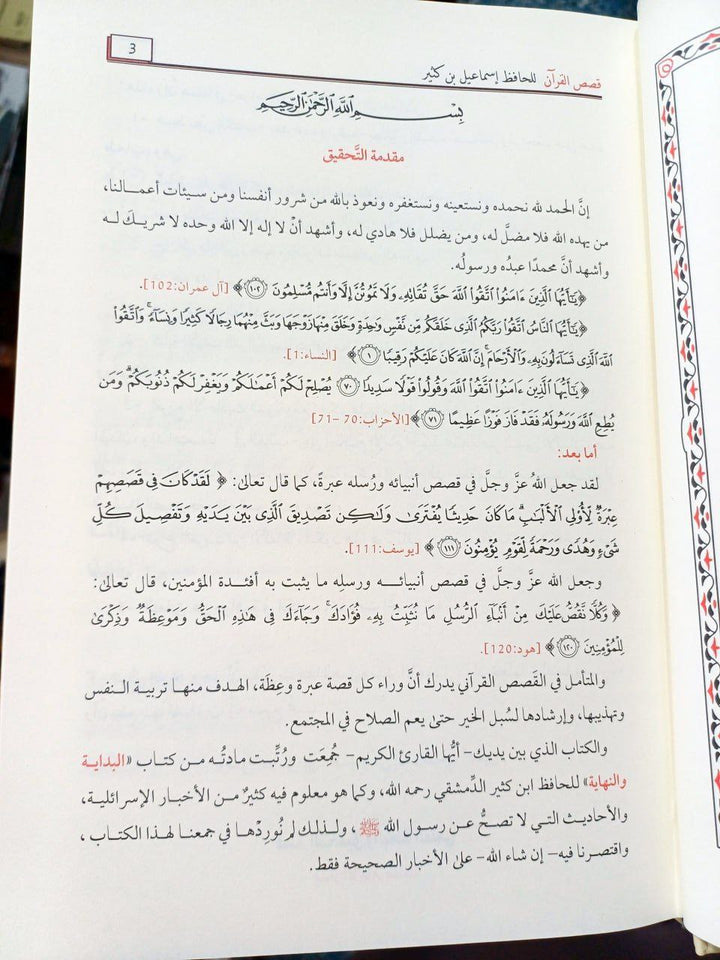 3
قصص القرآن للحافظ إسماعيل بن كثير
بِسْمِ اللَّهِ الرَّحْمَٰنِ الرَّحِيمِ
مقدمة التَّحقيق
إنَّ الحمد لله نحمده ونستعينه ونستغفره ونعوذ بالله من شرور أنفسنا ومن سيئات أعمـالنا،
من يهده الله فلا مضلَّ له، ومن يضلل فلا هادي له، وأشهد أنْ لا إله إلا الله وحده لا شريـك لـه
وأشهد أنَّ محمدًا عبدُه ورسولُه.
﴿يَٰٓأَيُّهَا ٱلَّذِينَ ءَامَنُوا۟ ٱتَّقُوا۟ ٱللَّهَ حَقَّ تُقَاتِهِۦ وَلَا تَمُوتُنَّ إِلَّا وَأَنتُم مُّسْلِمُونَ ١٠٢﴾ [آل عمران:102].
﴿يَٰٓأَيُّهَا ٱلنَّاسُ ٱتَّقُوا۟ رَبَّكُمُ ٱلَّذِى خَلَقَكُم مِّن نَّفْسٍ وَٰحِدَةٍ وَخَلَقَ مِنْهَا زَوْجَهَا وَبَثَّ مِنْهُمَا رِجَالًا كَثِيرًا وَنِسَآءً ۚ وَٱتَّقُوا۟
ٱللَّهَ ٱلَّذِى تَسَآءَلُونَ بِهِۦ وَٱلْأَرْحَامَ ۚ إِنَّ ٱللَّهَ كَانَ عَلَيْكُمْ رَقِيبًا ١﴾ [النساء:1].
﴿يَٰٓأَيُّهَا ٱلَّذِينَ ءَامَنُوا۟ ٱتَّقُوا۟ ٱللَّهَ وَقُولُوا۟ قَوْلًا سَدِيدًا ٧٠ يُصْلِحْ لَكُمْ أَعْمَٰلَكُمْ وَيَغْفِرْ لَكُمْ ذُنُوبَكُمْ ۗ وَمَن
يُطِعِ ٱللَّهَ وَرَسُولَهُۥ فَقَدْ فَازَ فَوْزًا عَظِيمًا ٧١﴾ [الأحزاب:70 –71]
أما بعد:
لقد جعل اللهُ عزَّ وجلَّ في قصص أنبيائه ورُسله عبرةً، كما قال تعالى: ﴿ لَقَدْ كَانَ فِى قَصَصِهِمْ
عِبْرَةٌ لِّأُو۟لِى ٱلْأَلْبَٰبِ ۗ مَا كَانَ حَدِيثًا يُفْتَرَىٰ وَلَٰكِن تَصْدِيقَ ٱلَّذِى بَيْنَ يَدَيْهِ وَتَفْصِيلَ كُلِّ
شَىْءٍ وَهُدًى وَرَحْمَةً لِّقَوْمٍ يُؤْمِنُونَ ١١١﴾ [يوسف:111].
وجعل الله عزَّ وجلَّ في قصص أنبيائـه ورسلِه ما يثبت به أفئـدة المؤمنين، قال تعالى:
﴿ وَكُلًّا نَّقُصُّ عَلَيْكَ مِنْ أَنۢبَآءِ ٱلرُّسُلِ مَا نُثَبِّتُ بِهِۦ فُؤَادَكَ ۚ وَجَآءَكَ فِى هَٰذِهِ ٱلْحَقُّ وَمَوْعِظَةٌ وَذِكْرَىٰ
لِلْمُؤْمِنِينَ ١٢٠﴾ [هود:120].
والمتأمل في القَصص القرآني يدرك أنَّ وراء كل قصة عبرة وعِظَة، الهدف منهـا تربيـة الـنفس
وتهذيبها، وإرشادها لسُبل الخير حتىٰ يعم الصلاح في المجتمع.
والكتاب الذي بين يديك- أيُّها القارئ الكريم- جُمِعَت ورُتِّبـت مادتُـه مـن كتـاب «البدايـة
والنهاية» للحافظ ابن كثير الدِّمشقي رحمه الله، وكما هو معلوم فيه كثيرٌ مـن الأخبار الإسرائليـة،
والأحاديث التي لا تصـحُّ عـن رسول الله ﷺ ، ولـذلك لم نُورِدْهـا في جمعنـا لهـذا الكتـاب ،
واقتصرنا فيه- إن شاء الله- على الأخبار الصحيحة فقط.